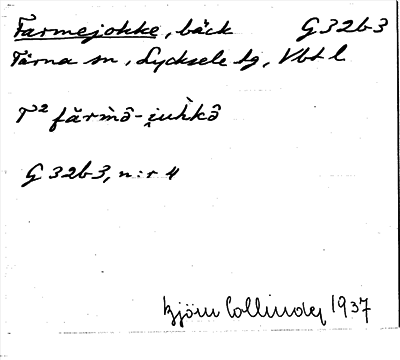 Farmejokke, bäck G 32b3
Tärna sn, Lycksele tg, Vbt l
T² fărm̀ô-i̯uh̀kô
G 32b3, n:r 4
Björn Collinder 1937